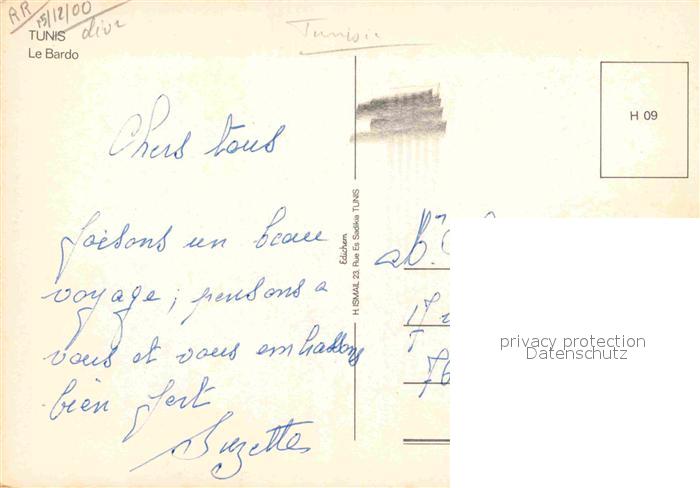 RR
15/12/00
divr
TUNIS
Le Bardo
Tunisie
Chers tous
faisons un beau
voyage; pensons a
vous et vous embrassons
bien fort
Suzette
Edichem
H. ISMAIL 23, Rue Es Sadikia TUNIS
H 09
17
76
privacy protection
Datenschutz